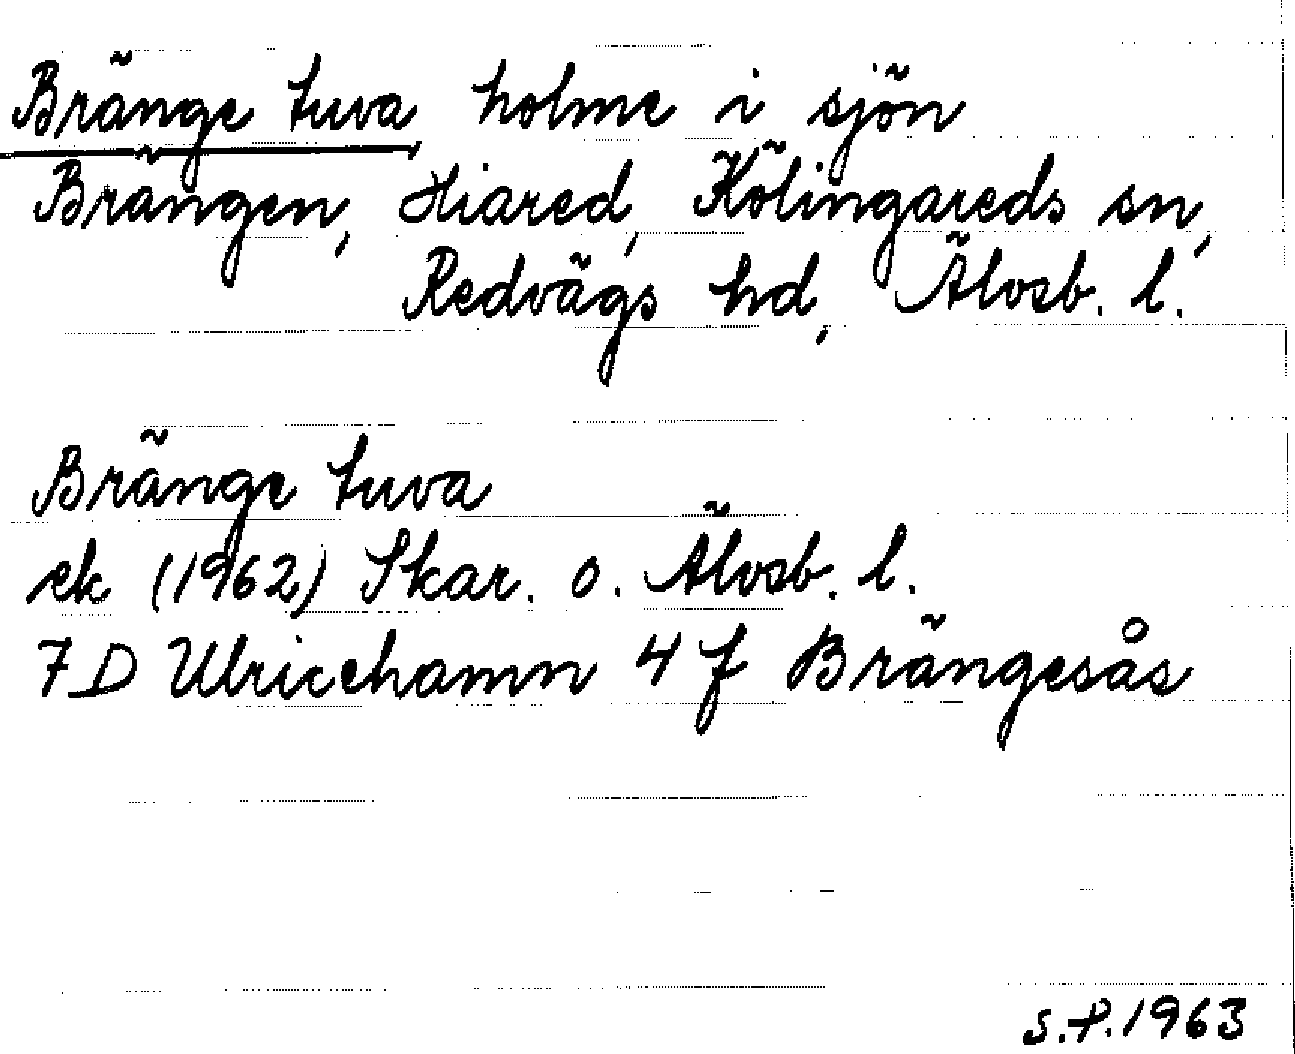 Bränge tuva holme i sjön
Brängen, Hiared, Kölingareds sn,
Redvägs hd, Älvsb. l.
Bränge tuva
ek (1962) Skar. o. Älvsb. l.
7D Ulricehamn 4 f Brängesås
S.P. 1963